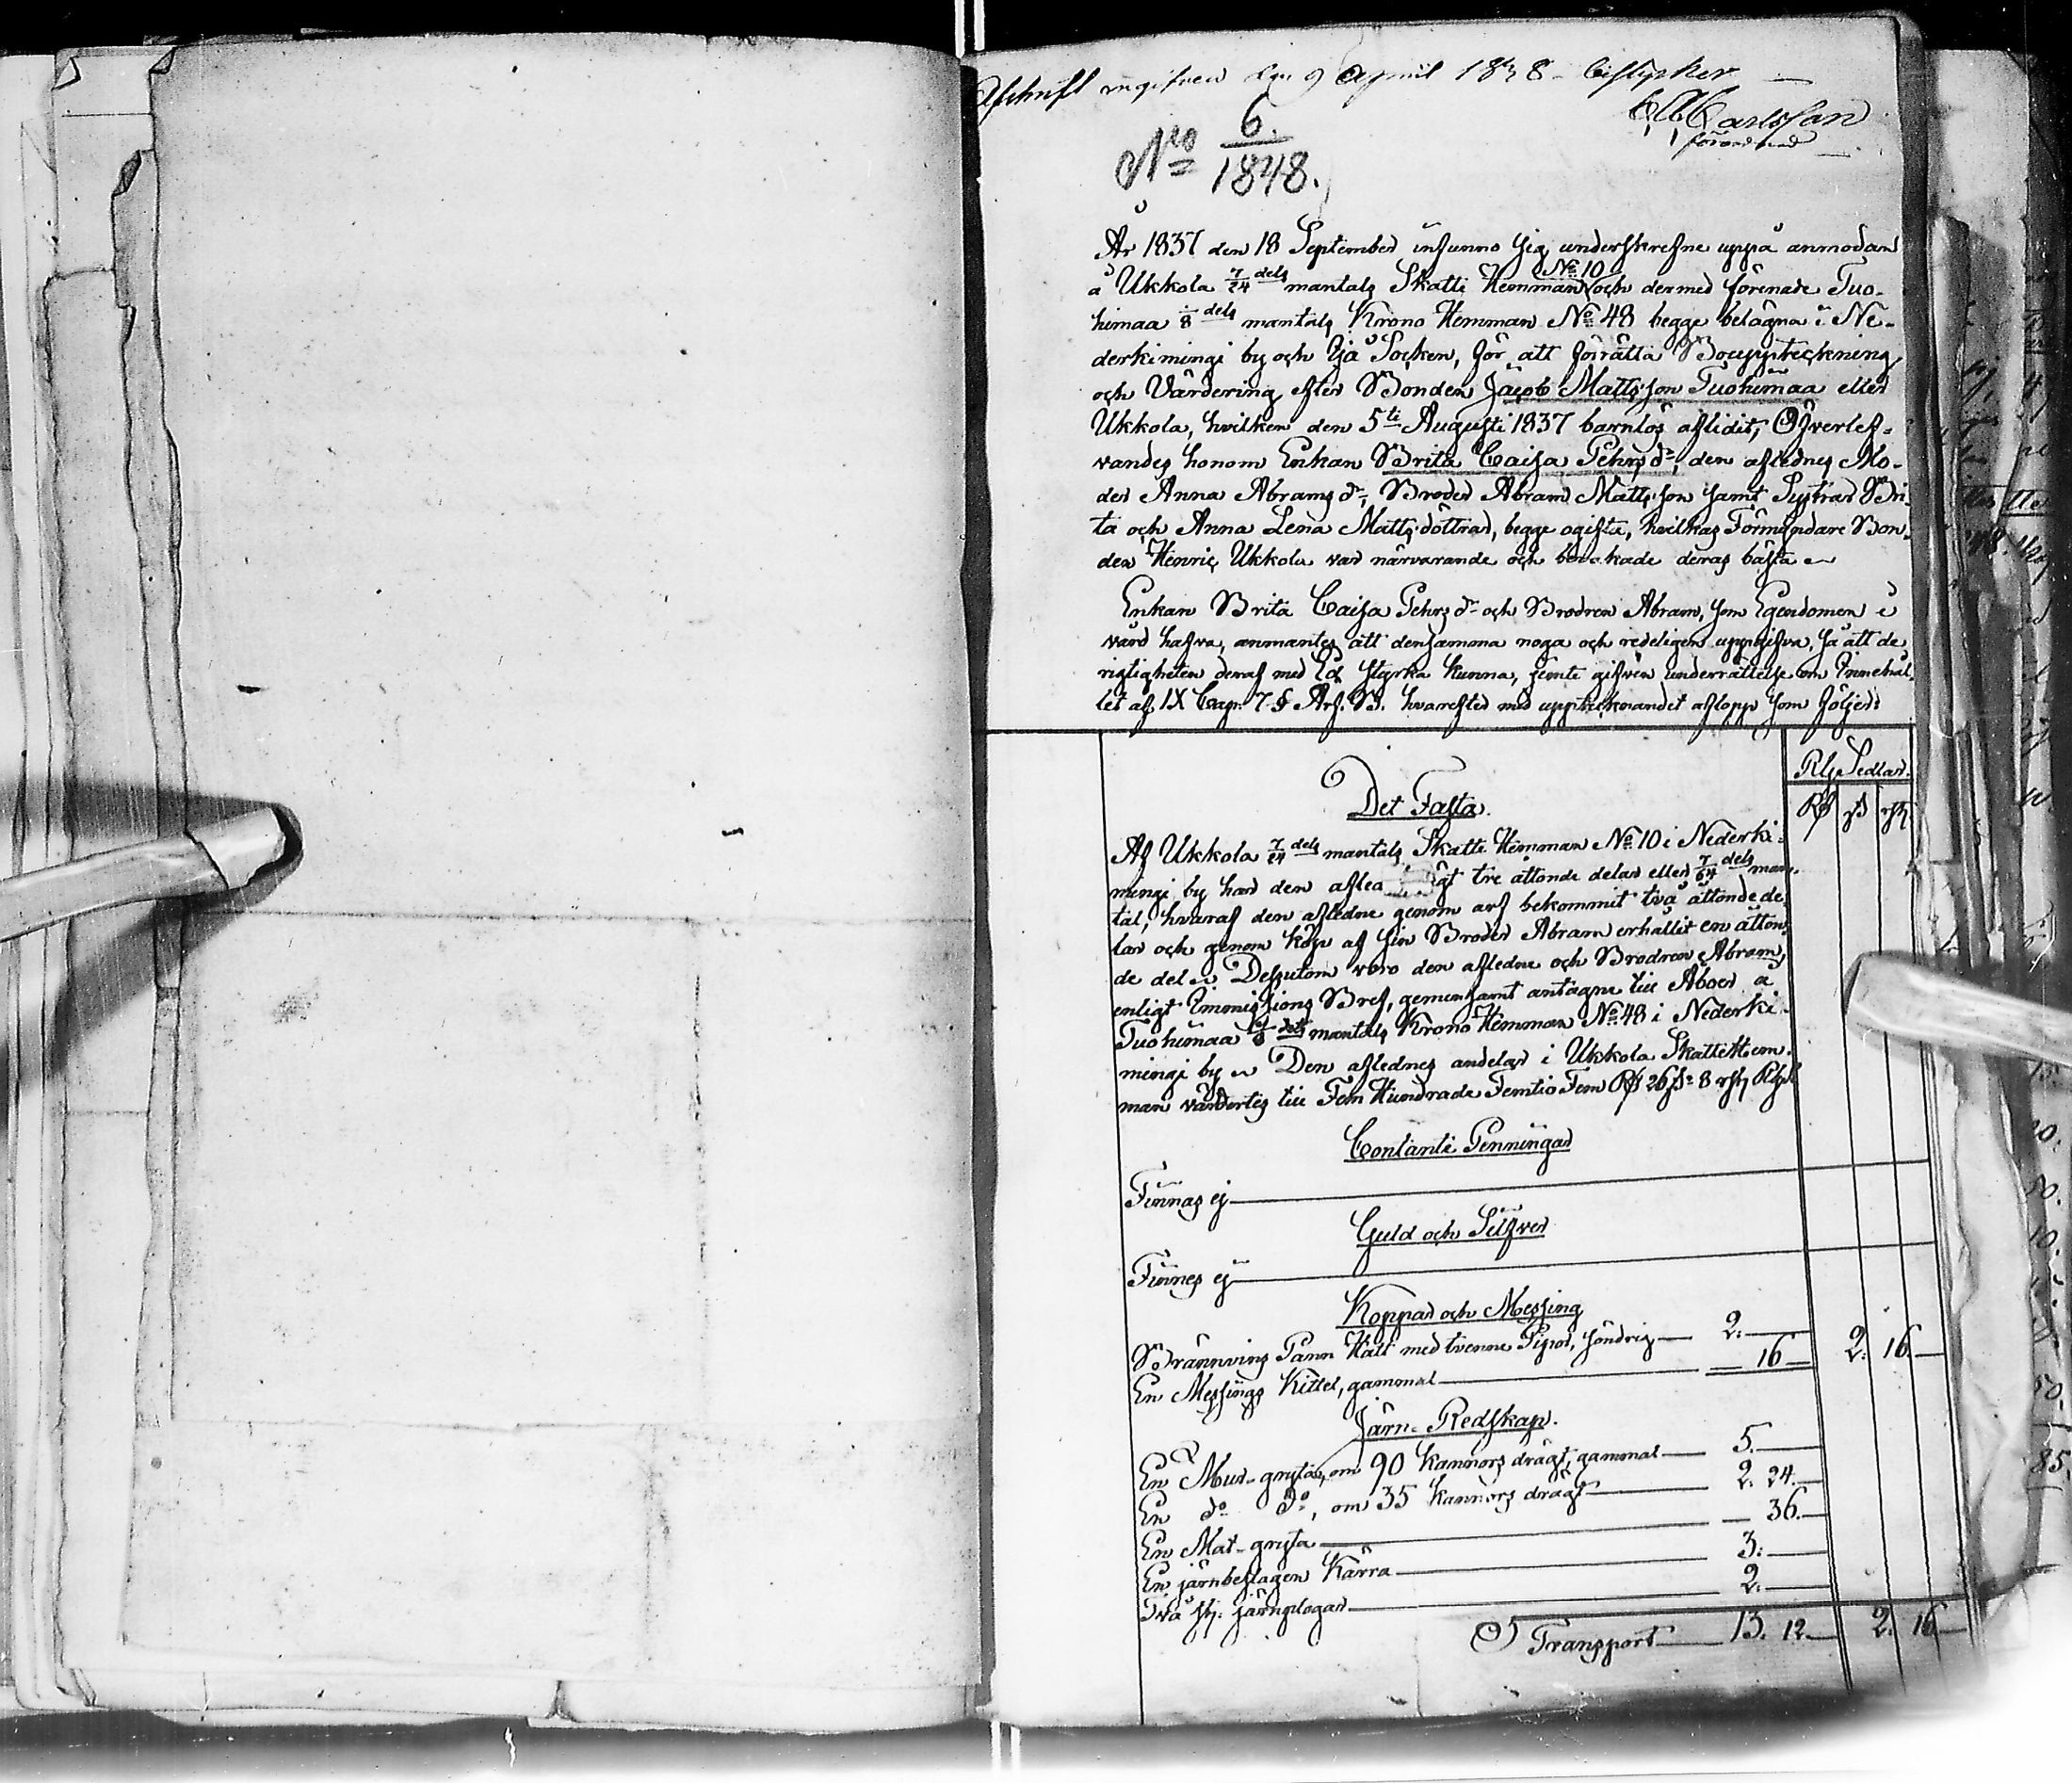 Afskrift ingifven den 9 April 1838 bestyrker
C A Carlsson
förordnad
N:o 6. / 1848.
År 1837 den 18 September infunno sig underskrefne uppå anmodan
å Ukkola 7/24 dels mantals Skatte Hemman No 10 och dermed förenade Tuo-
himaa 1/8 dels mantals Krono Hemman No 48 begge belägna i Ne-
derkimingi by och Ijå Socken, för att förrätta Bouppteckning
och Värdering efter Bonden Jacob Mattsson Tuohimaa eller
Ukkola, hvilken den 5ti Augusti 1837 barnlös aflidit, Öfverlef-
vandes honom Enkan Brita Caisa Pehrs dr, den aflednes Mo-
der Anna Abrams dr, Broder Abram Mattsson samt Systrar Bri-
ta och Anna Lena Mattsdöttrar, begge ogifta, hvilkas Förmyndare Bon-
den Henric Ukkola var närvarande och bevakade deras bästa
Enkan Brita Caisa Pehrs dr och Brodren Abram, som Egendomen i
vård hafva, anmantes att densamma noga och redeligen uppgifva, så att de
rigtigheten deraf med Ed styrka kunna, jemte gifven underrättelse om Innehål-
let af IX Cap. 7 § Arf. B. hvarefter med upptecknandet aflopp som följer:
Rgs Sedlar.
Det Fasta.
Rd s rst
Af Ukkola 7/24 dels mantals Skatte Hemman No 10 i Nederki-
mingi by har den afled ägt tre åttonde delar eller 7/64 dels man-
tal, hvaraf den afledne genom arf bekommit två åttonde de-
lar och genom köp af sin Broder Abram erhållit en åtton-
de del. Dessutom voro den afledne och Brodren Abram,
enligt Immissions Bref, gemensamt antagne till Åboer å
Tuohimaa 1/8 dels mantals Krono Hemman No 48 i Nederki-
mingi by. Den aflednes andelar i Ukkola Skatte Hem-
man värdertes till Fem Hundrade Femtio Fem Rd 26 s 8 rst Rgs
Contante Penningar
Finnas ej
Guld och Silfver
Finnes ej
Koppar och Messing
Brännvins Pann Hatt med tvenne Pipor, söndrig 2.
En Messings Kittel, gammal 16 2. 16.
Järn Redskap.
En Mur-gryta, om 90 kannors drägt, gammal 5.
En do do, om 35 kannors drägt 2. 24.
En Mat-gryta 36.
En järnbeslagen Kärra 3.
Två st. järnplogar 2.
Transport 13. 12. 2. 16